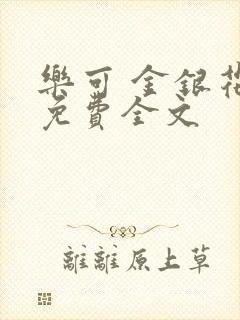 樂可 金銀花
免費全文
離離原上草